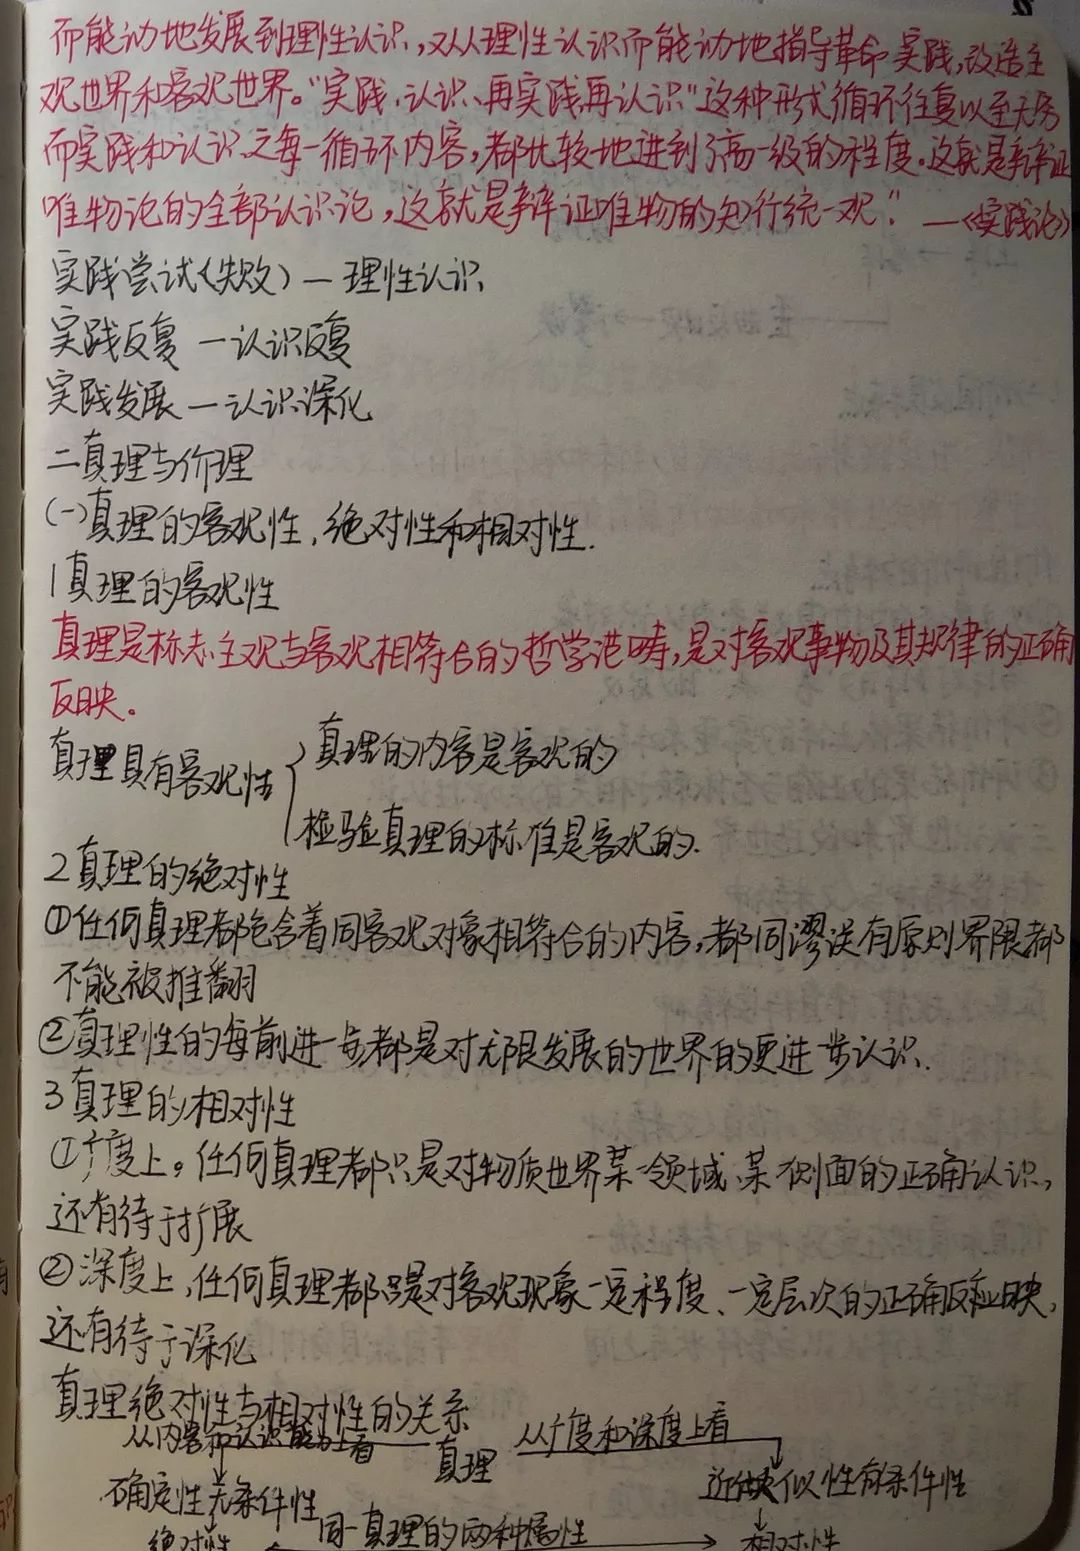 而能动地发展到理性认识,又从理性认识而能动地指导革命实践,改造主
观世界和客观世界。“实践、认识、再实践再认识”这种形式循环往复以至无穷
而实践和认识之每一循环内容,都比较地进到了高一级的程度。这就是辩证
唯物论的全部认识论,这就是辩证唯物的知行统一观。” —《实践论》
实践尝试(失败)—理性认识
实践反复—认识反复
实践发展—认识深化
二真理与价理
(一)真理的客观性,绝对性和相对性.
1真理的客观性
真理是标志主观与客观相符合的哲学范畴,是对客观事物及其规律的正确
反映。
真理具有客观性
真理的内容是客观的
检验真理的标准是客观的.
2真理的绝对性
①任何真理都包含着同客观对象相符合的内容,都同谬误有原则界限都
不能被推翻
②真理性的每前进一步都是对无限发展的世界的更进一步认识.
3真理的相对性
①广度上。任何真理都只是对物质世界某一领域、某一侧面的正确认识,
还有待于扩展
②深度上,任何真理都只是对客观现象一定程度、一定层次的正确反映,
还有待于深化
真理绝对性与相对性的关系
从内容和认识能力上看
真理
从广度和深度上看
确定性无条件性
近似性有条件性
绝对性
同一真理的两种属性
相对性